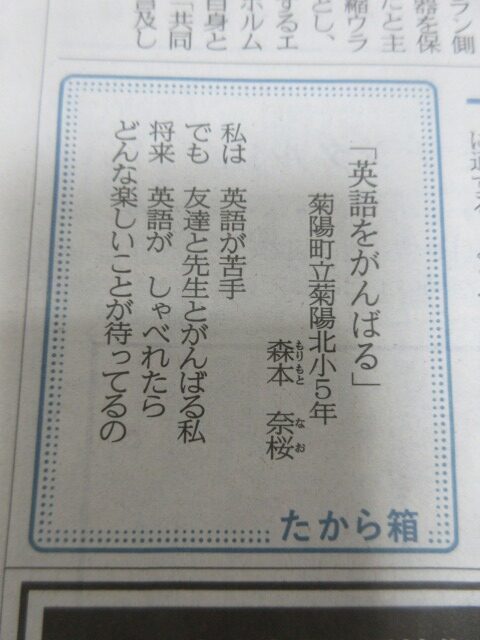 ラン側
器を保
たと主
縮ウラ
とし、
するエ
ホルム
自身と
「共同
言及し
たから箱
「英語をがんばる」
菊陽町立菊陽北小5年
森本 奈桜
もりもと なお
私は 英語が苦手
でも 友達と先生とがんばる私
将来 英語が しゃべれたら
どんな楽しいことが待ってるの